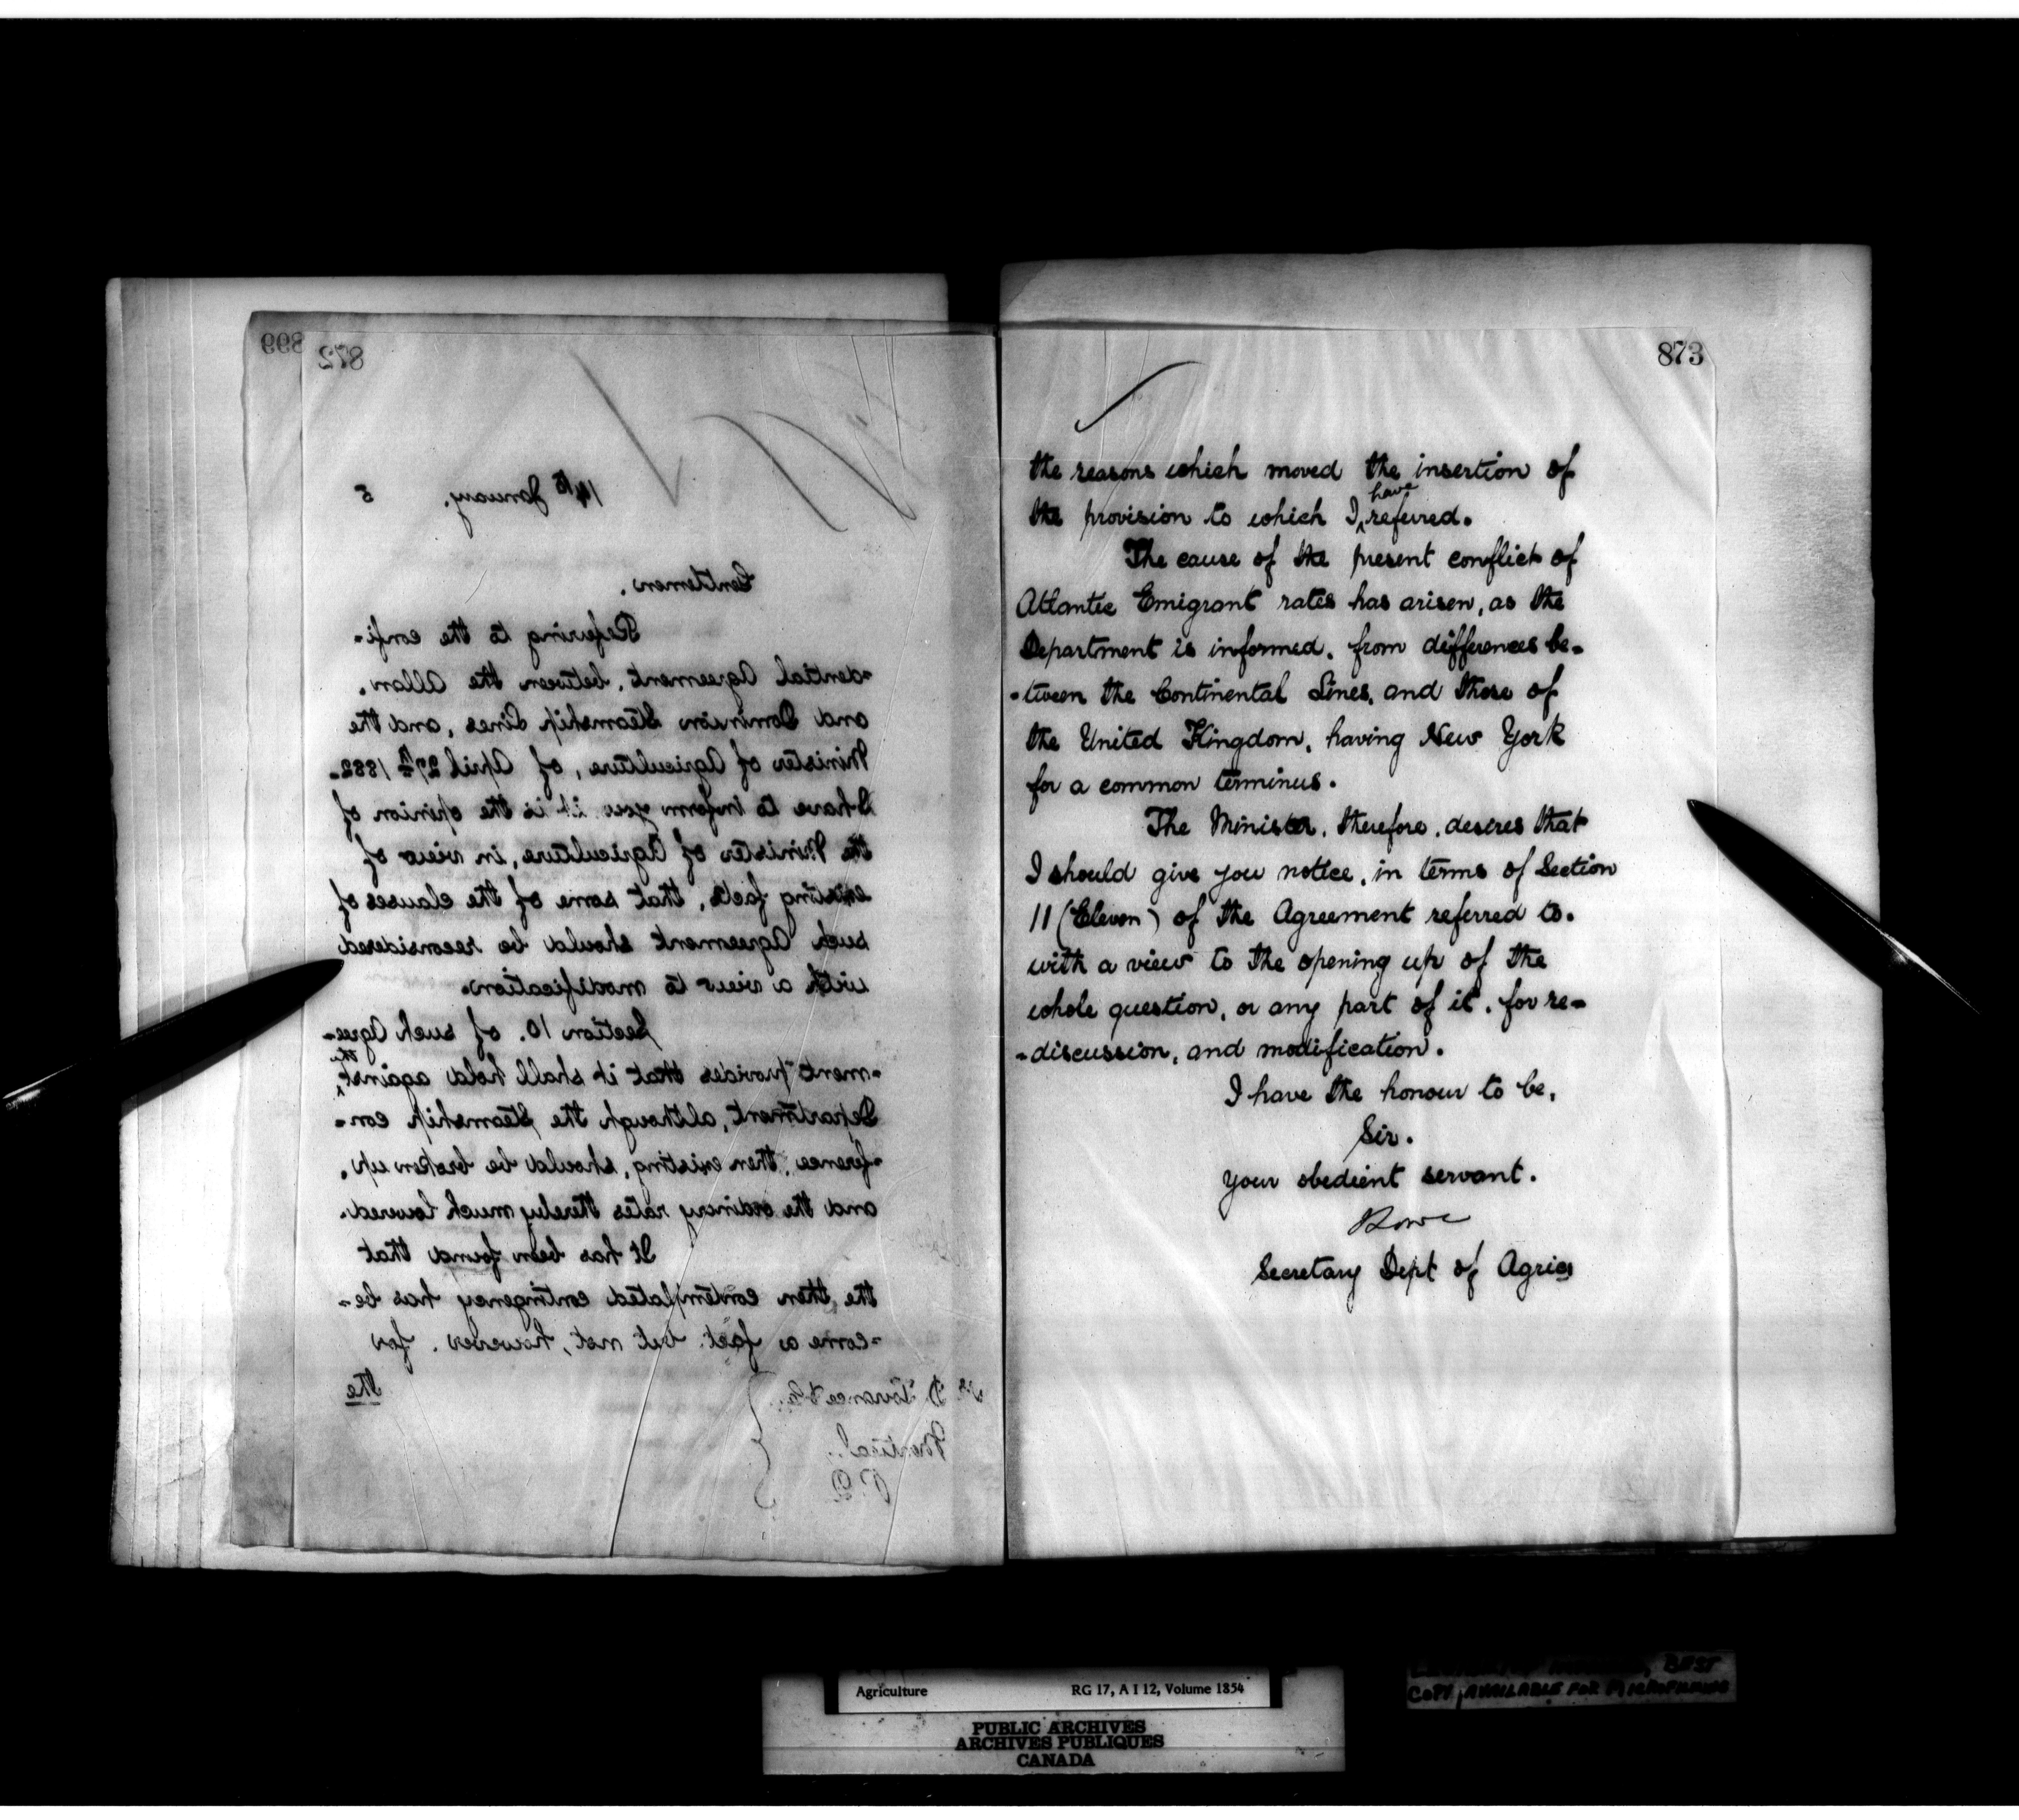 899
872
14th January, 5
Gentlemen.
Refering to the confi-
-dential Agreement, between the Allan,
and Dominion Steamship Lines, and the
Minister of Agriculture, of April 27th 1882.
I have to inform you it is the opinion of
the Minister of Agriculture, in view of
existing facts, that some of the clauses of
such Agreement should be reconsidered
with a view to modification.
Section 10. of such Agree-
-ment provides that it shall hold against, the
Department, although the Steamship con-
-ference, then existing, should be broken up,
and the ordinary rates thereby much lowered.
It has been found that
the then contemplated contingency has be-
-come a fact but not, however, for
the
D Torrance & Co.
Montreal.
P.Q
873
the reasons which moved the insertion of
the provision to which I have referred.
The cause of the present conflict of
Atlantic Emigrant rates has arisen, as the
Department is informed, from differences be-
-tween the Continental Lines, and those of
the United Kingdom, having New York
for a common terminus.
The Minister, therefore, desires that
I should give you notice, in terms of Section
11 (Eleven) of the Agreement referred to.
with a view to the opening up of the
whole question, or any part of it, for re-
-discussion, and modification.
I have the honour to be,
Sir.
Your obedient servant.
Lowe
Secretary Dept of Agric
Agriculture RG 17, A I 12, Volume 1854
PUBLIC ARCHIVES
ARCHIVES PUBLIQUES
CANADA
BEST
COPY AVAILABLE FOR MICROFILMING